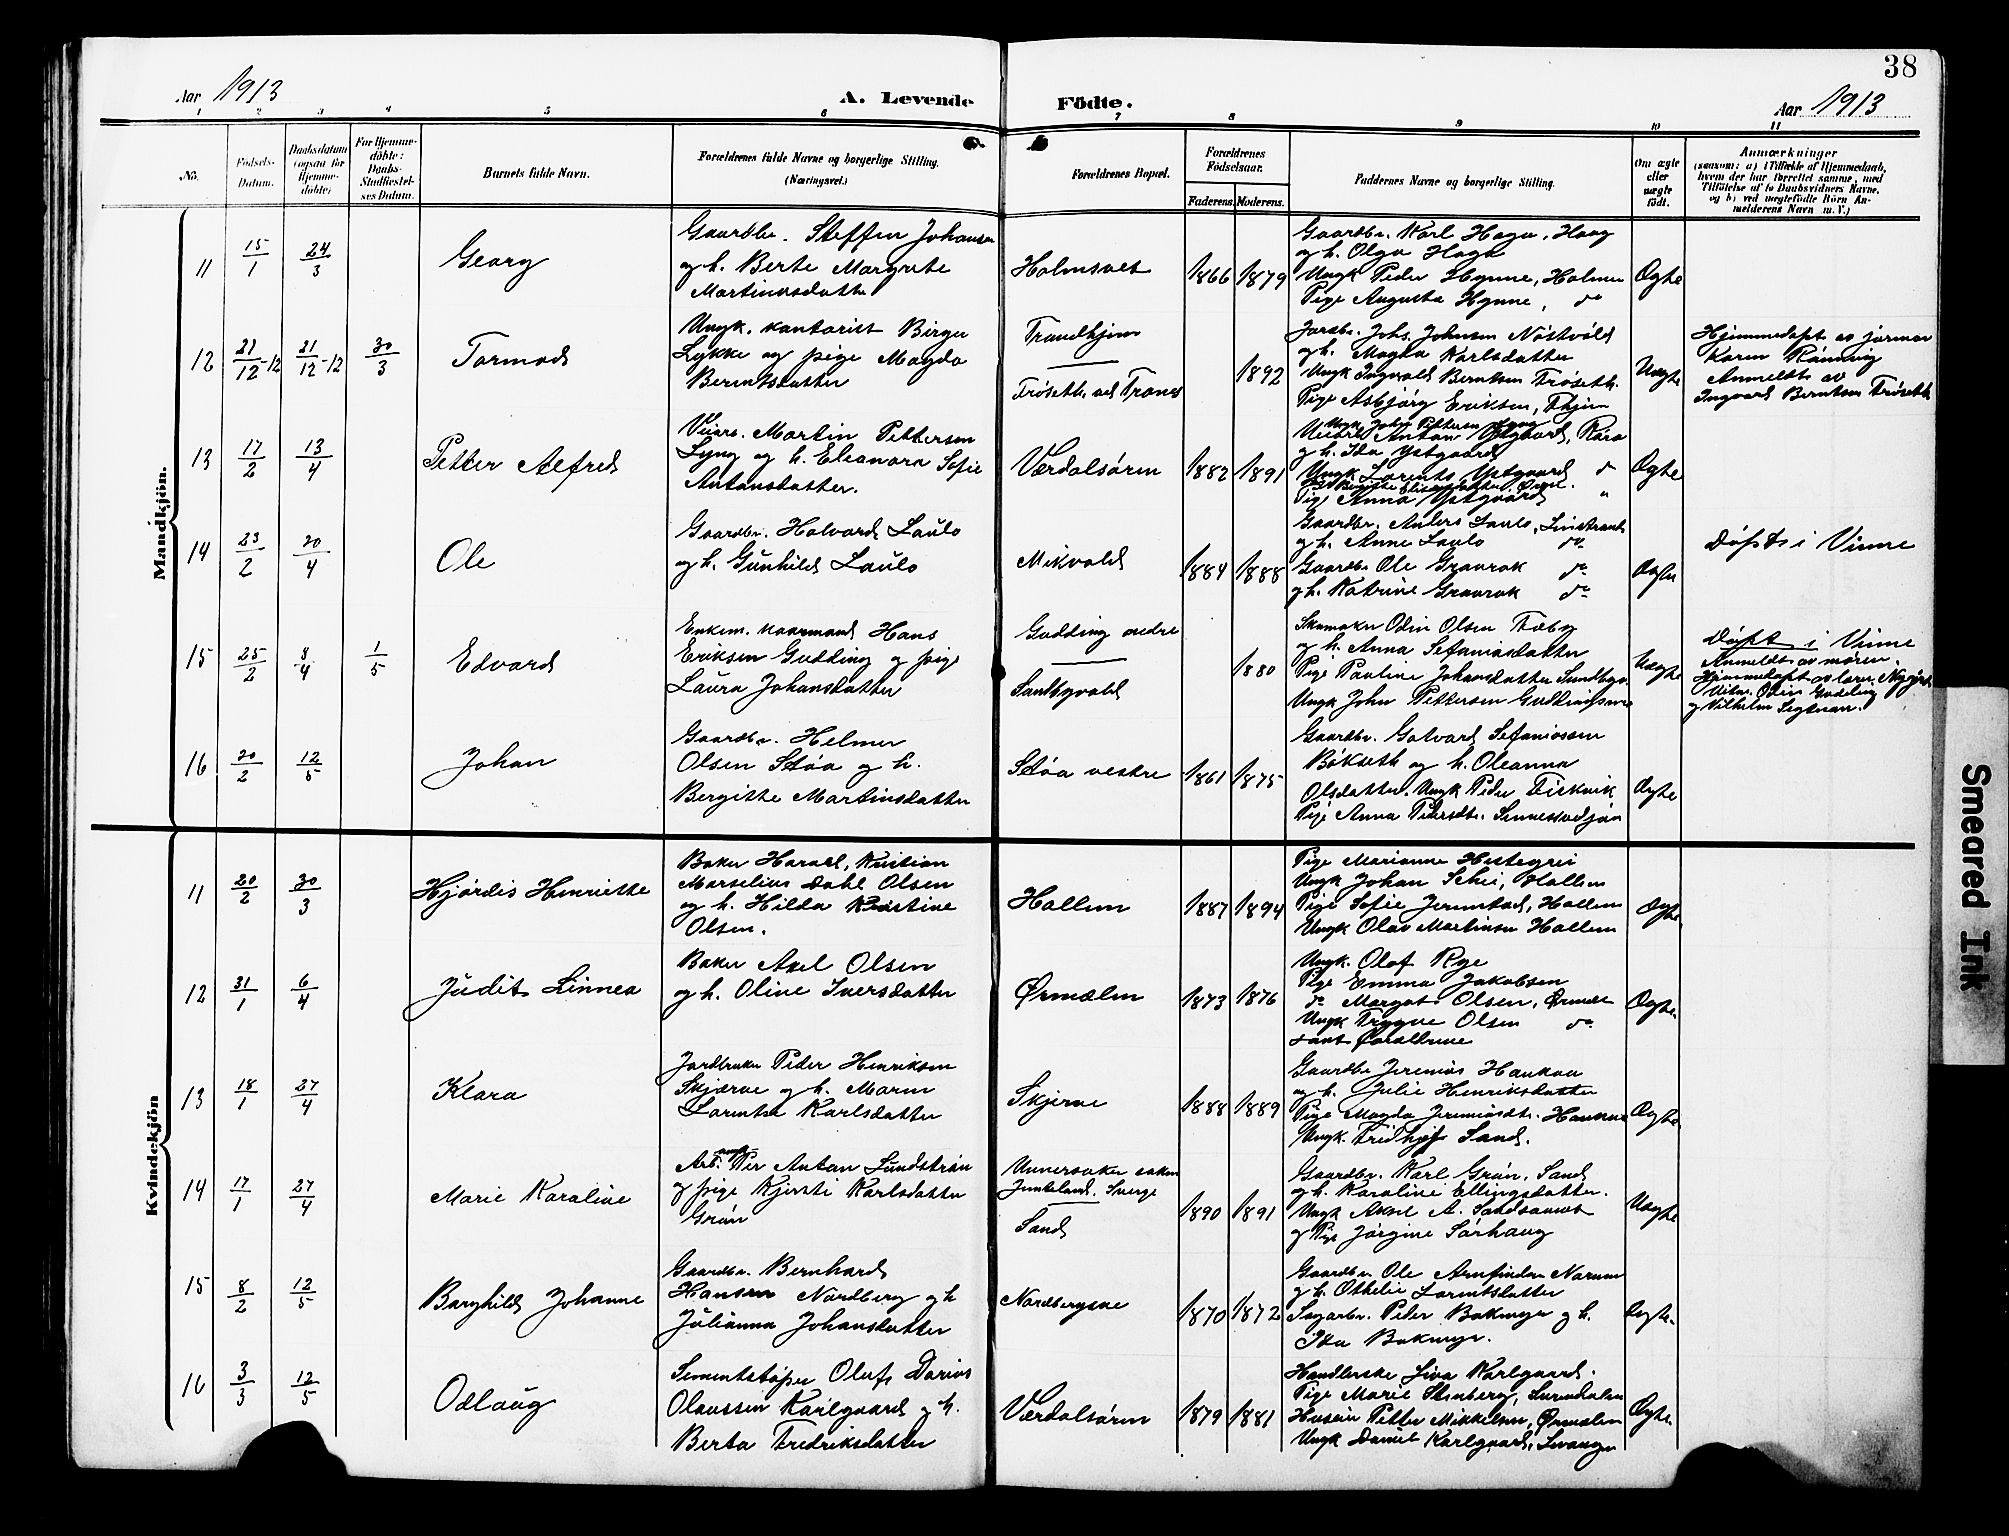 38
Aar 1913
A. Levende Födte.
Aar 1913
1 2 3 4 5 6 7 8 9 10 11
No.
Födsels-Datum.
Daabsdatum (ogsaa for Hjemmedöbte)
For Hjemmedöbte: Daabs-Stadfæstelses Datum.
Barnets fulde Navn.
Forældrenes fulde Navne og borgerlige Stilling. (Næringsvei.)
Forældrenes Bopæl.
Forældrenes Födselsaar.
Faderens. Moderens.
Faddernes Navne og borgerlige Stilling.
Om ægte eller uægte födt.
Anmærkninger
(saasom: a) i Tilfælde af Hjemmedaab, hvem der har forrettet samme, med Tilföielse af to Daabsvidners Navne, og b) ved uægtefödte Börn Anmelderens Navn m. V.)
Mandkjön.
11 15/1 24/3 Georg
Gaardbr. Steffen Johansen
og h. Berte Margrete
Martinusdatter
Holmsvet 1866 1879
Gaardbr. Karl Haga, Haag
og h. Olga Haga
Ungk Peder Hynne, Holmen
Pige Augusta Hynne, do
Ægte
12 21/12-12 21/12-12 30/3 Tormod
Ungk. kontorist Birger
Lykke og pige Magda
Berntsdatter
Trondhjem
Frøseth ved Trones
1892
Jordbr. Johs. Johnsen Nöstvold
og h. Magda Karlsdatter
Ungk Ingvald Berntsen Frøseth.
Pige Asbjörg Eriksen, Thjem
Uægte
Hjemmedøpt av jormor
Karen Rönning
Anmeldt av
Ingvald Berntsen Frøseth
13 17/2 13/4 Petter Alfred
Veiarb. Martin Pettersen
Lyng og h. Eleanora Sofie
Antonsdatter.
Værdalsøren 1882 1891
Ungk John Pettersen Lyng
Anton Ystgaard, Røra
og h. Ida Ystgaard
Ungk Lorents Ystgaard do
Pige Anna Ystgaard "
Ægte
14 23/2 20/4 Ole
Gaardbr. Halvard Laulo
og h. Gunhild Laulo
Mikvold 1884 1888
Gaardbr. Anders Laulo, Leinstrand
og h. Anne Laulo do
Gaardbr Ole Gravrok do
og h. Katrine Gravrok do
Ægte
Døpt i Vinne
15 25/2 8/4 1/5 Edvard
Enkem. Hans
Eriksen Gudding og pige
Laura Johansdatter
Gudding nedre
Sandbyvald
1880
Skomaker Odin Olsen Fæby
og h. Anna Sefaniasdatter
Pige Pauline Johansdatter Sundbyv.
Ungk John Pettersen Guddingsvald
Uægte
Døpt i Vinne
Anmeldt av moren.
Hjemmedøpt av lærer Nygjerd
Vitne: Odin Gudding
og Vilhelm Segtnan.
16 20/2 12/5 Johan
Gaardbr. Helmer
Olsen Støa og h.
Bergitte Martinsdatter
Støa vestre 1861 1875
Gaardbr. Golvard Sefaniassen
Bökseth og h. Oleanna
Olsdatter. Ungk Peder Fiskvik
Pige Anna Pedersdtr.
Ægte
Kvindekjön
11 20/2 30/3 Hjördis Henriette
Baker Harald, Kristian
Marselius Dahl Olsen
og h. Hilda Kristine
Olsen.
Hallem 1887 1894
Pige Marianne Hestegrei
Ungk Johan Schei, Hallem
Pige Sofie Jermstad, Hallem
Ungk Olav Martinsen Hallem
Ægte
12 31/1 6/4 Judit Linnea
Baker Axel Olsen
og h. Oline Iversdatter
Ørmælen 1873 1876
Ungk. Olof Rye
Pige Emma Jakobsen
do Margot Olsen, Ørmæle
Ungk Trygve Olsen do
samt Forældrene
Ægte.
13 18/1 27/4 Klara
Jordbruker Peder Henriksen
Skjærve og h. Maren
Lorentse Karlsdatter
Skjerve 1888 1889
Gaardbr Jeremias Haukaa
og h. Julie Henriksdatter
Pige Magda Jeremiasdtr. Haukaa
Ungk. Fridhjof Sand.
Ægte
14 17/1 27/4 Marie Karoline
Arb. ungk Per Anton Lundström
og pige Kjersti Karlsdatter
Grøn
Unnersaker soken
Jemteland. Sverge
Sand
1890 1891
Gaardbr. Karl Grøn, Sand
og h. Karoline Ellingsdatter.
Ungk Aksel A. Sandsaunet
og Pige Jørgine Sørhaug
Uægte
15 8/2 12/5 Borghild Johanne
Gaardbr. Bernhard
Hansen Nordberg og h
Julianna Johansdatter
Nordbergsve 1870 1872
Gaardbr. Ole Arnfinden Norum
og h. Othelie Lorentsdatter
Sagarbr. Peder Bakmyr og h.
Ida Bakmyr.
Ægte.
16 3/3 12/5 Odlaug
Sementstøper Oluf Darius
Olaussen Karlgaard og h.
Berta Fredriksdatter
Værdalsøren 1879 1881
Handlerske Jiva Karlgaard.
Pige Marie Stenberg, Surendalen
Huseier Petter Mikkelsen, Ørmælen
Ungk Daniel Karlgaard, Levanger
Ægte.
Smeared Ink